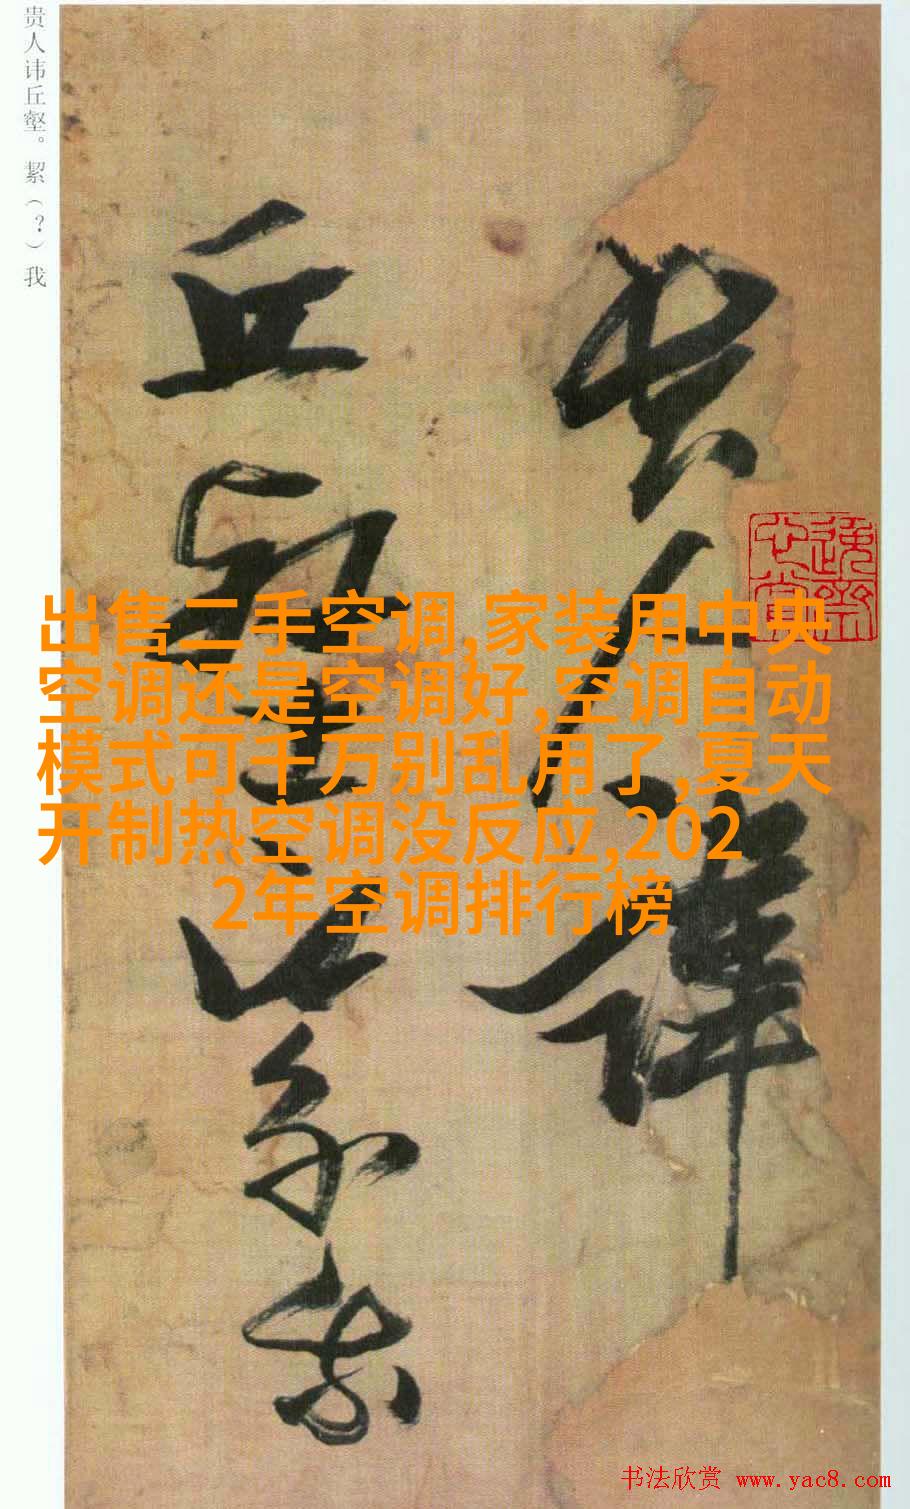 贵人讳丘壑。絜（？）我
贵人讳
丘壑之絜我
出售二手空调,家装用中央
空调还是空调好,空调自动
模式可千万别乱用了,夏天
开制热空调没反应,202
2年空调排行榜
书法欣赏 www.yac8.com